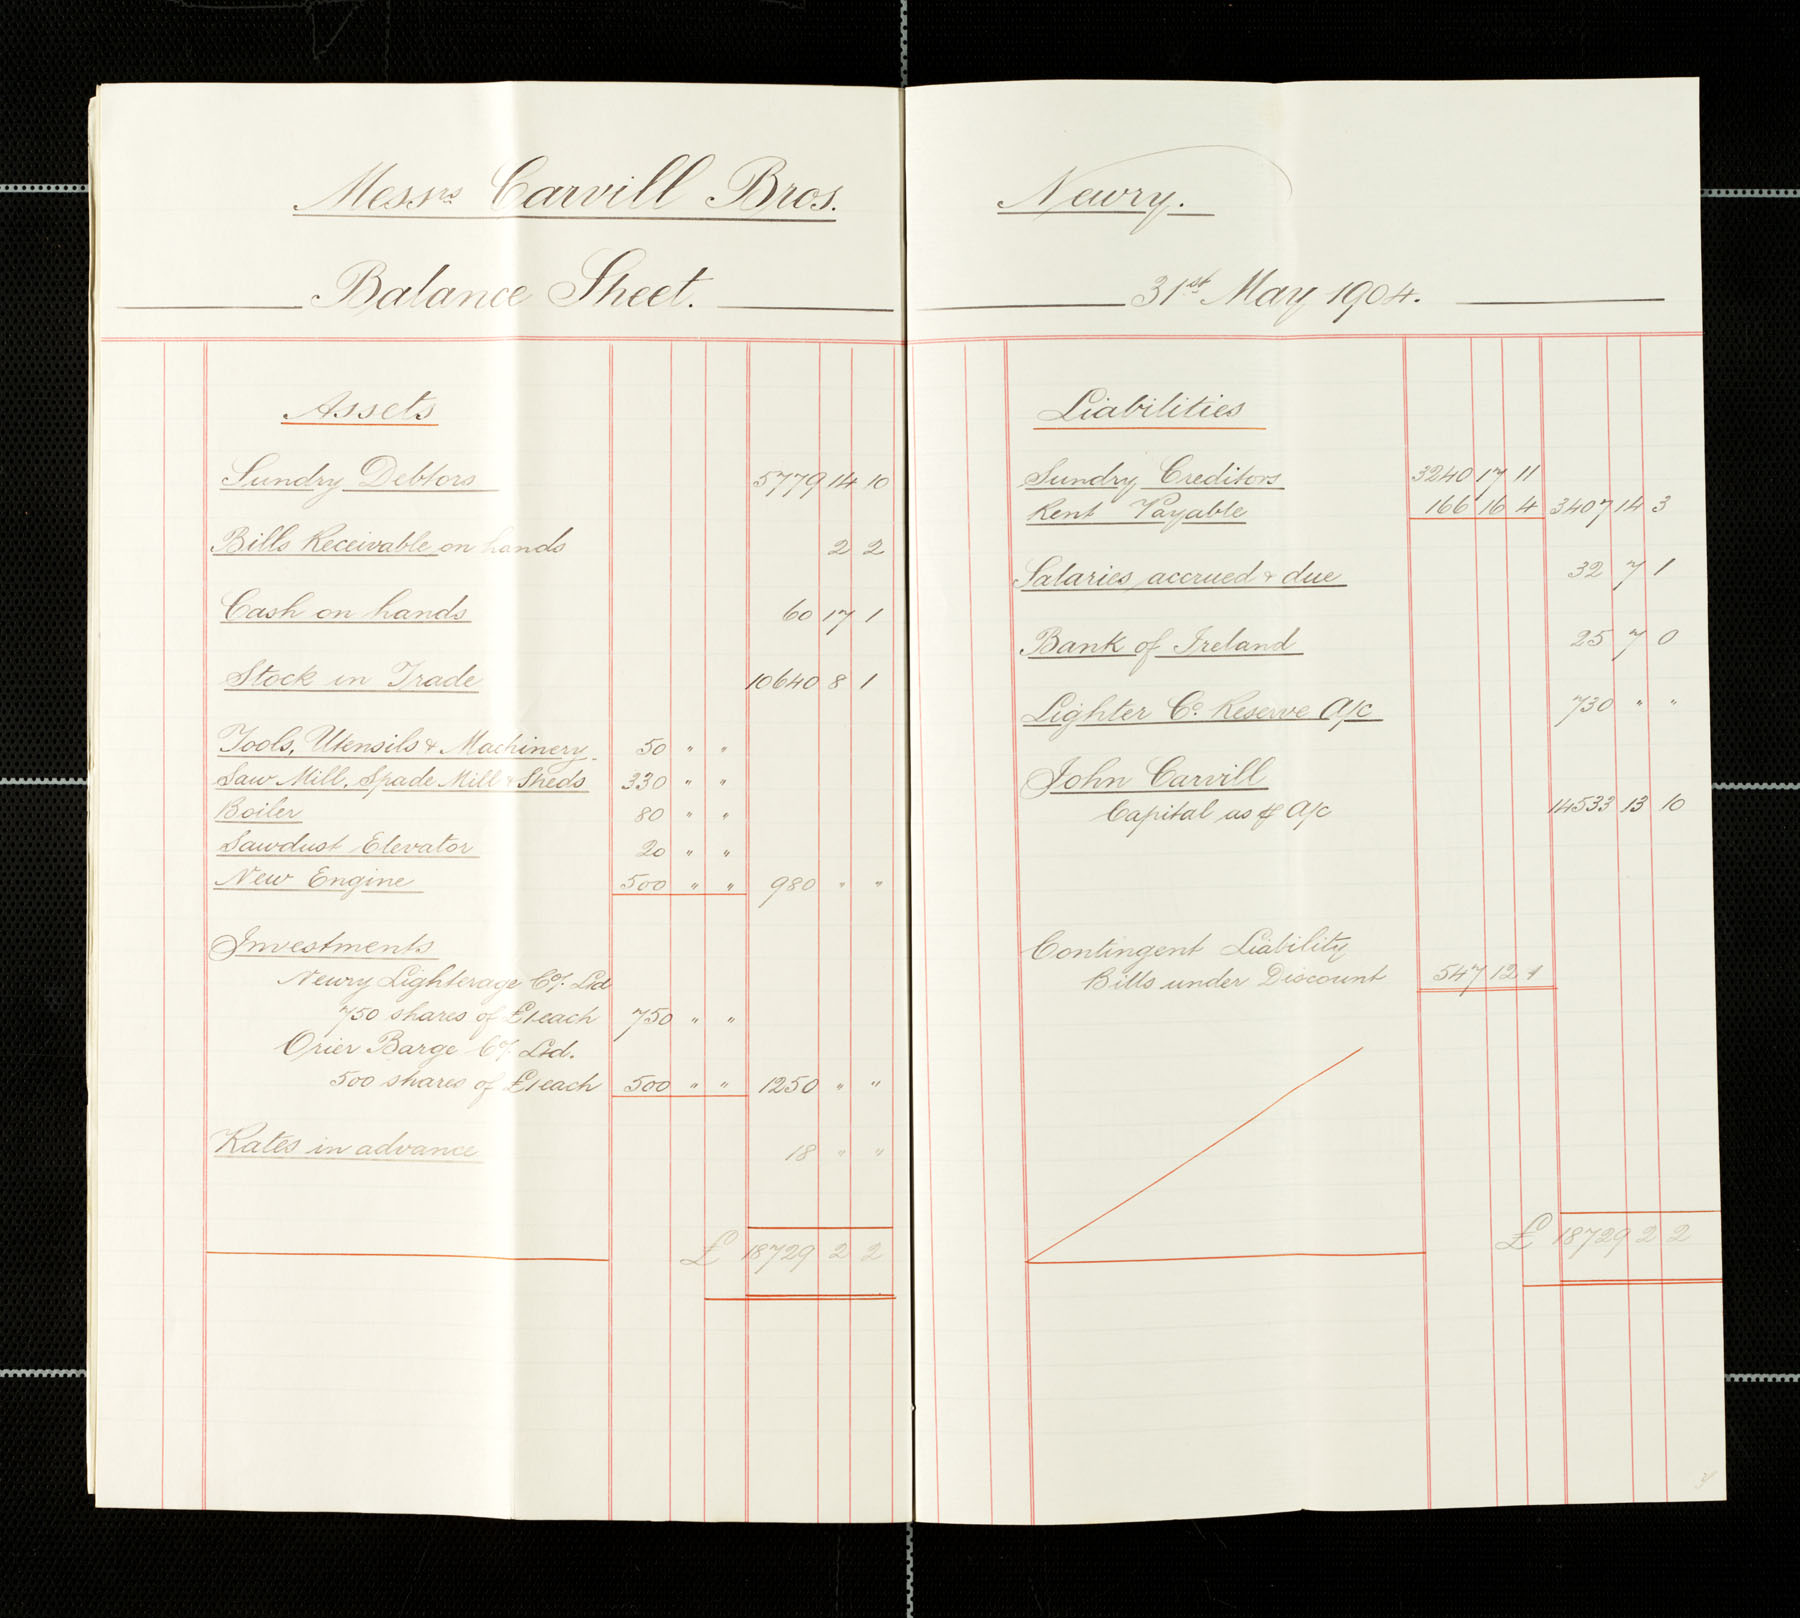 Messrs Carvill Bros.
Balance Sheet.
Assets
Sundry Debtors 5779 14 10
Bills Receivable on hands 2 2
Cash on hands 60 17 1
Stock in Trade 10640 8 1
Tools, Utensils & Machinery. 50 " "
Saw Mill, Spade Mill & Sheds 330 " "
Boiler 80 " "
Sawdust Elevator 20 " "
New Engine 500 " " 980 " "
Investments
Newry Lighterage Co/. Ltd
750 shares of £1 each 750 " "
Orier Barge Co/. Ltd.
500 shares of £1 each 500 " " 1250 " "
Rates in advance 18 " "
£ 18729 2 2
Newry.
31st May 1904.
Liabilities
Sundry Creditors 3240 17 11
Rent Payable 166 16 4 3407 14 3
Salaries accrued & due 32 7 1
Bank of Ireland 25 7 0
Lighter Co. Reserve A/c 730 " "
John Carvill
Capital as A/c 14533 13 10
Contingent Liability
Bills under Discount 547 12 1
£ 18729 2 2